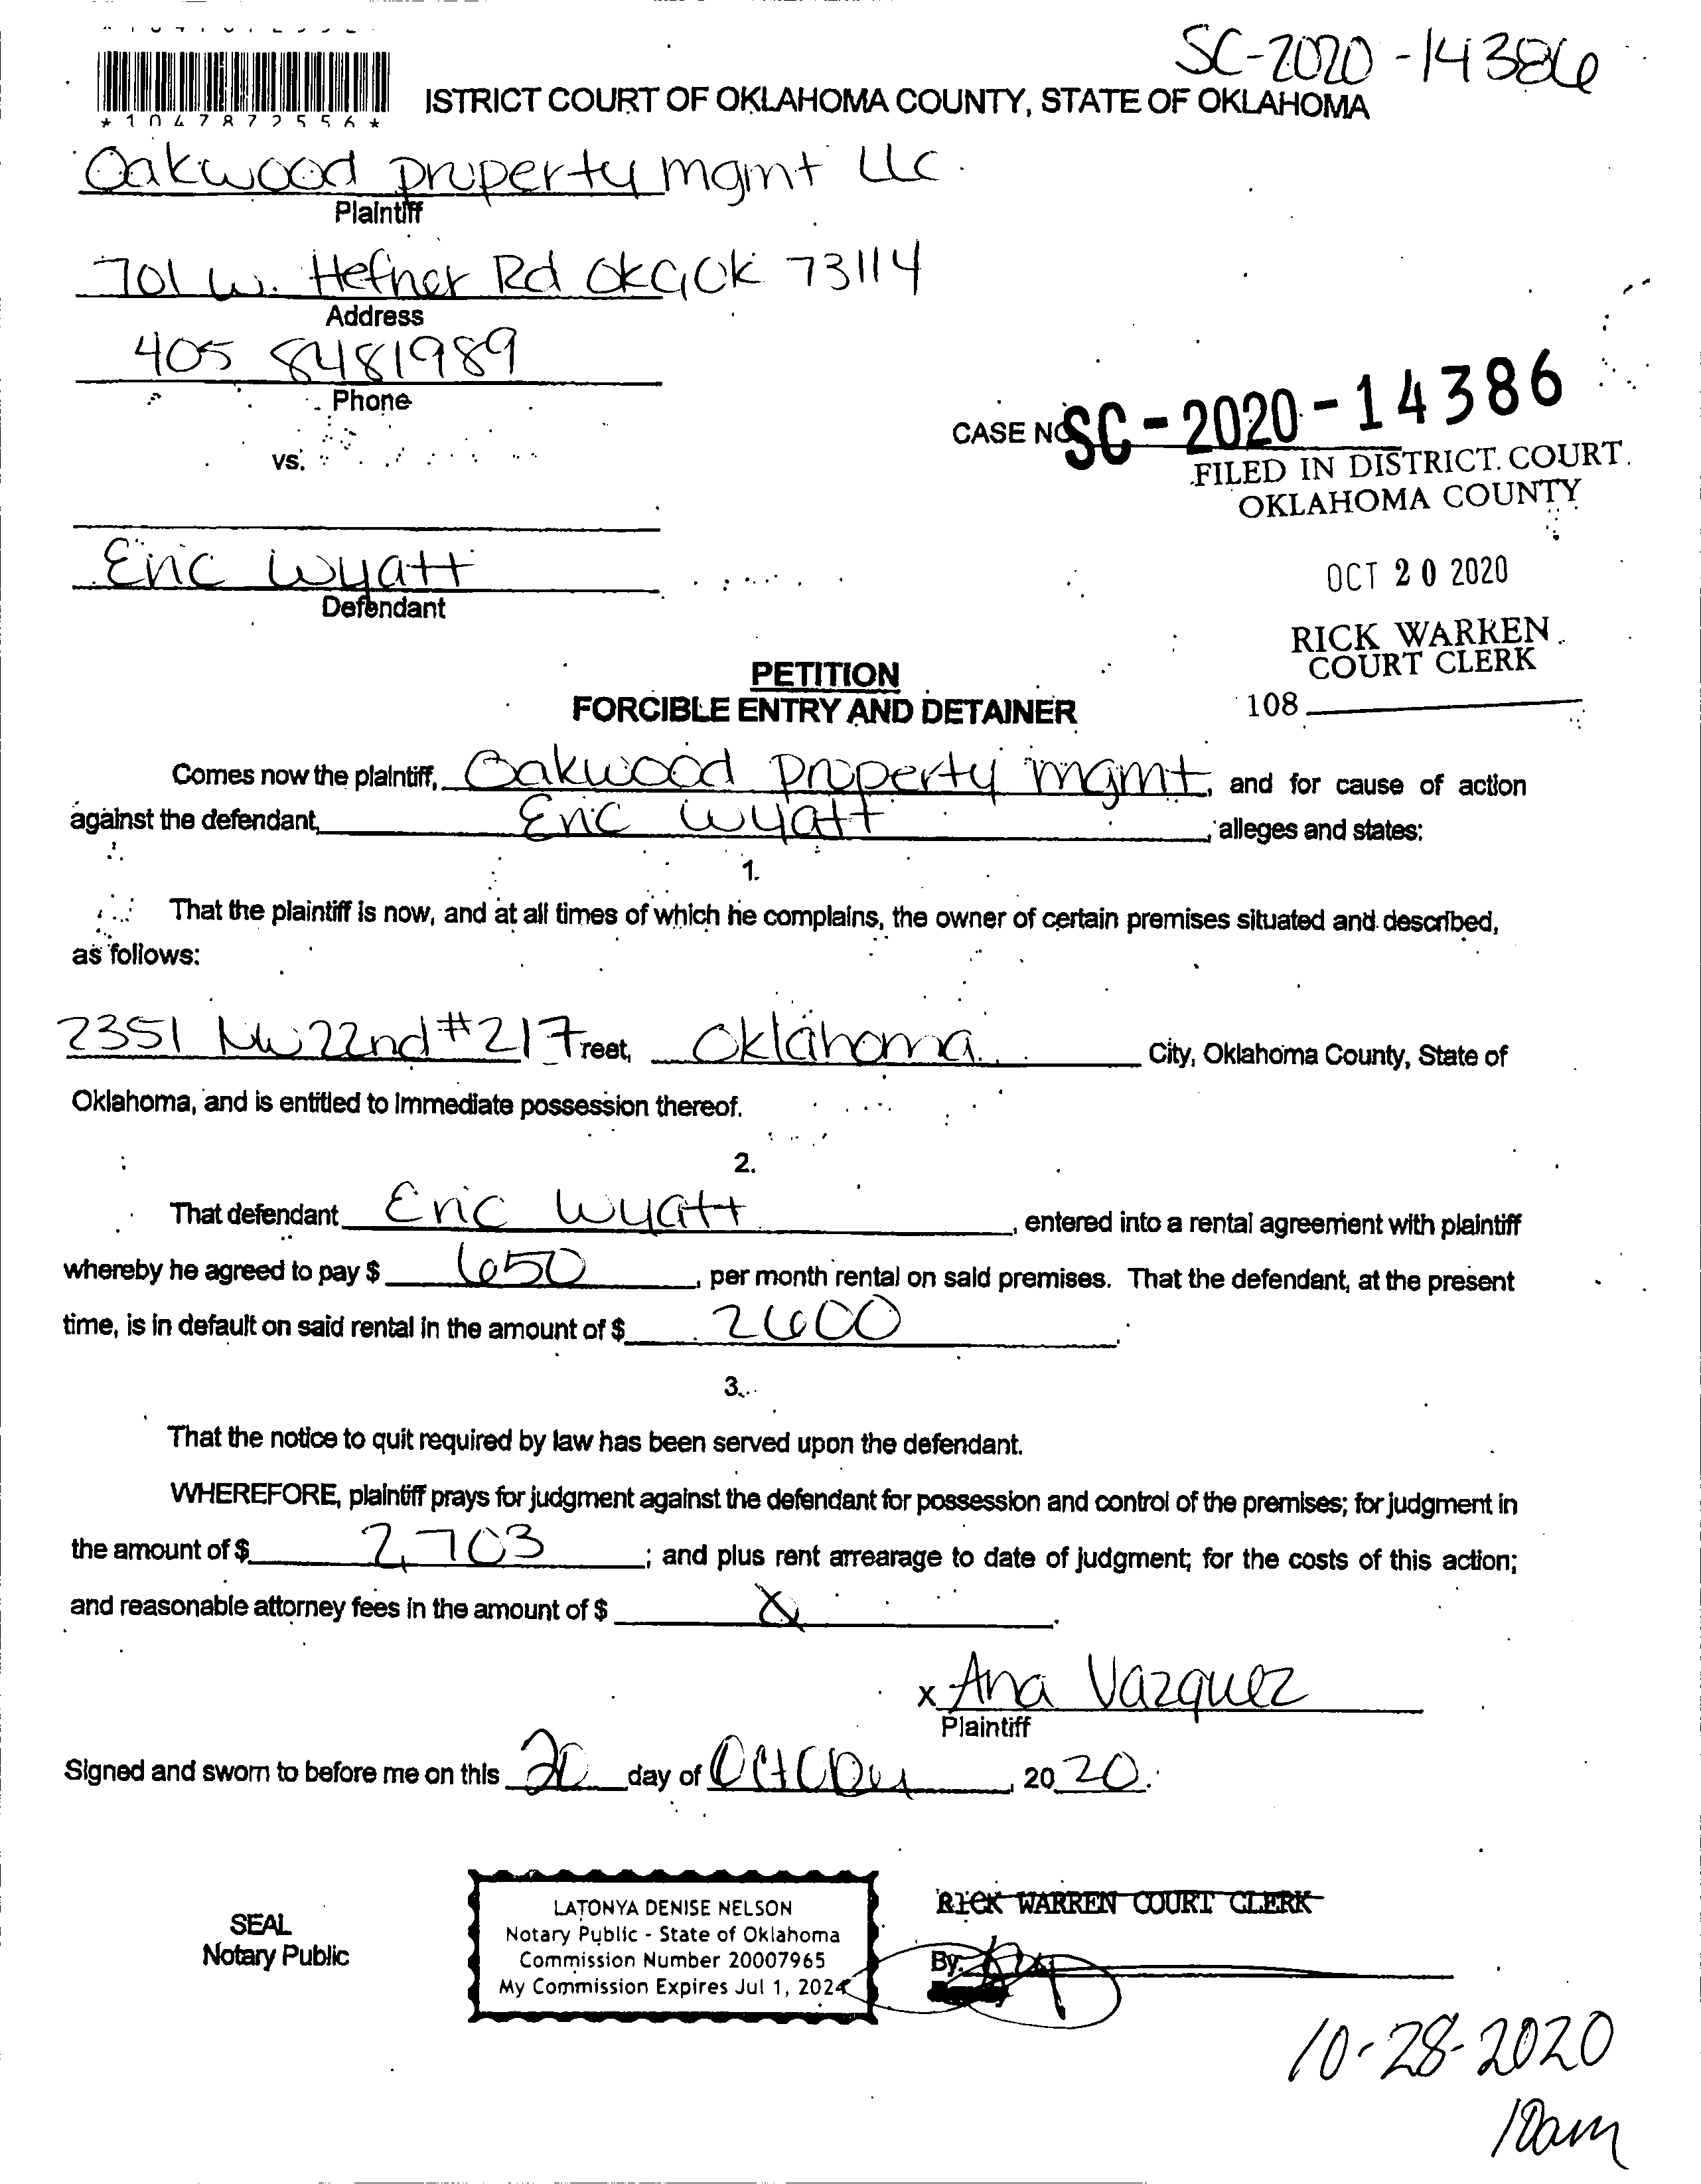 SC-2020-14386
*1047872556*
ISTRICT COURT OF OKLAHOMA COUNTY, STATE OF OKLAHOMA
Oakwood property mgmt LLC.
Plaintiff
701 W. Hefner Rd OKC, OK 73114
Address
405 8481989
Phone
CASE NO SC-2020-14386
vs.
FILED IN DISTRICT COURT
OKLAHOMA COUNTY
Eric Wyatt
Defendant
OCT 20 2020
RICK WARREN
COURT CLERK
108
PETITION
FORCIBLE ENTRY AND DETAINER
Comes now the plaintiff, Oakwood property mgmt, and for cause of action
against the defendant, Eric Wyatt, alleges and states:
1.
That the plaintiff is now, and at all times of which he complains, the owner of certain premises situated and described,
as follows:
2351 NW 22nd #217 reet, Oklahoma City, Oklahoma County, State of
Oklahoma, and is entitled to immediate possession thereof.
2.
That defendant Eric Wyatt, entered into a rental agreement with plaintiff
whereby he agreed to pay $ 650, per month rental on said premises. That the defendant, at the present
time, is in default on said rental in the amount of $ 2600.
3.
That the notice to quit required by law has been served upon the defendant.
WHEREFORE, plaintiff prays for judgment against the defendant for possession and control of the premises; for judgment in
the amount of $ 2,703; and plus rent arrearage to date of judgment; for the costs of this action;
and reasonable attorney fees in the amount of $
x Ana Vazquez
Plaintiff
Signed and sworn to before me on this 20 day of October, 2020.
SEAL
Notary Public
LATONYA DENISE NELSON
Notary Public - State of Oklahoma
Commission Number 20007965
My Commission Expires Jul 1, 2024
RICK WARREN COURT CLERK
By:
10-28-2020
10am